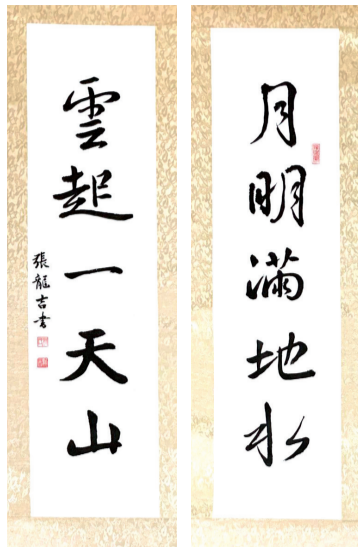 月明滿地水
雲起一天山
張龍吉書